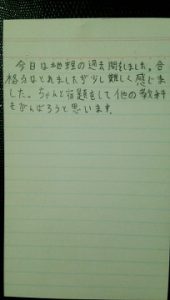 今日は地理の過去問をしました。合
格点はとれましたが少し難しく感じま
した。ちゃんと宿題をして他の教科
もがんばろうと思います。